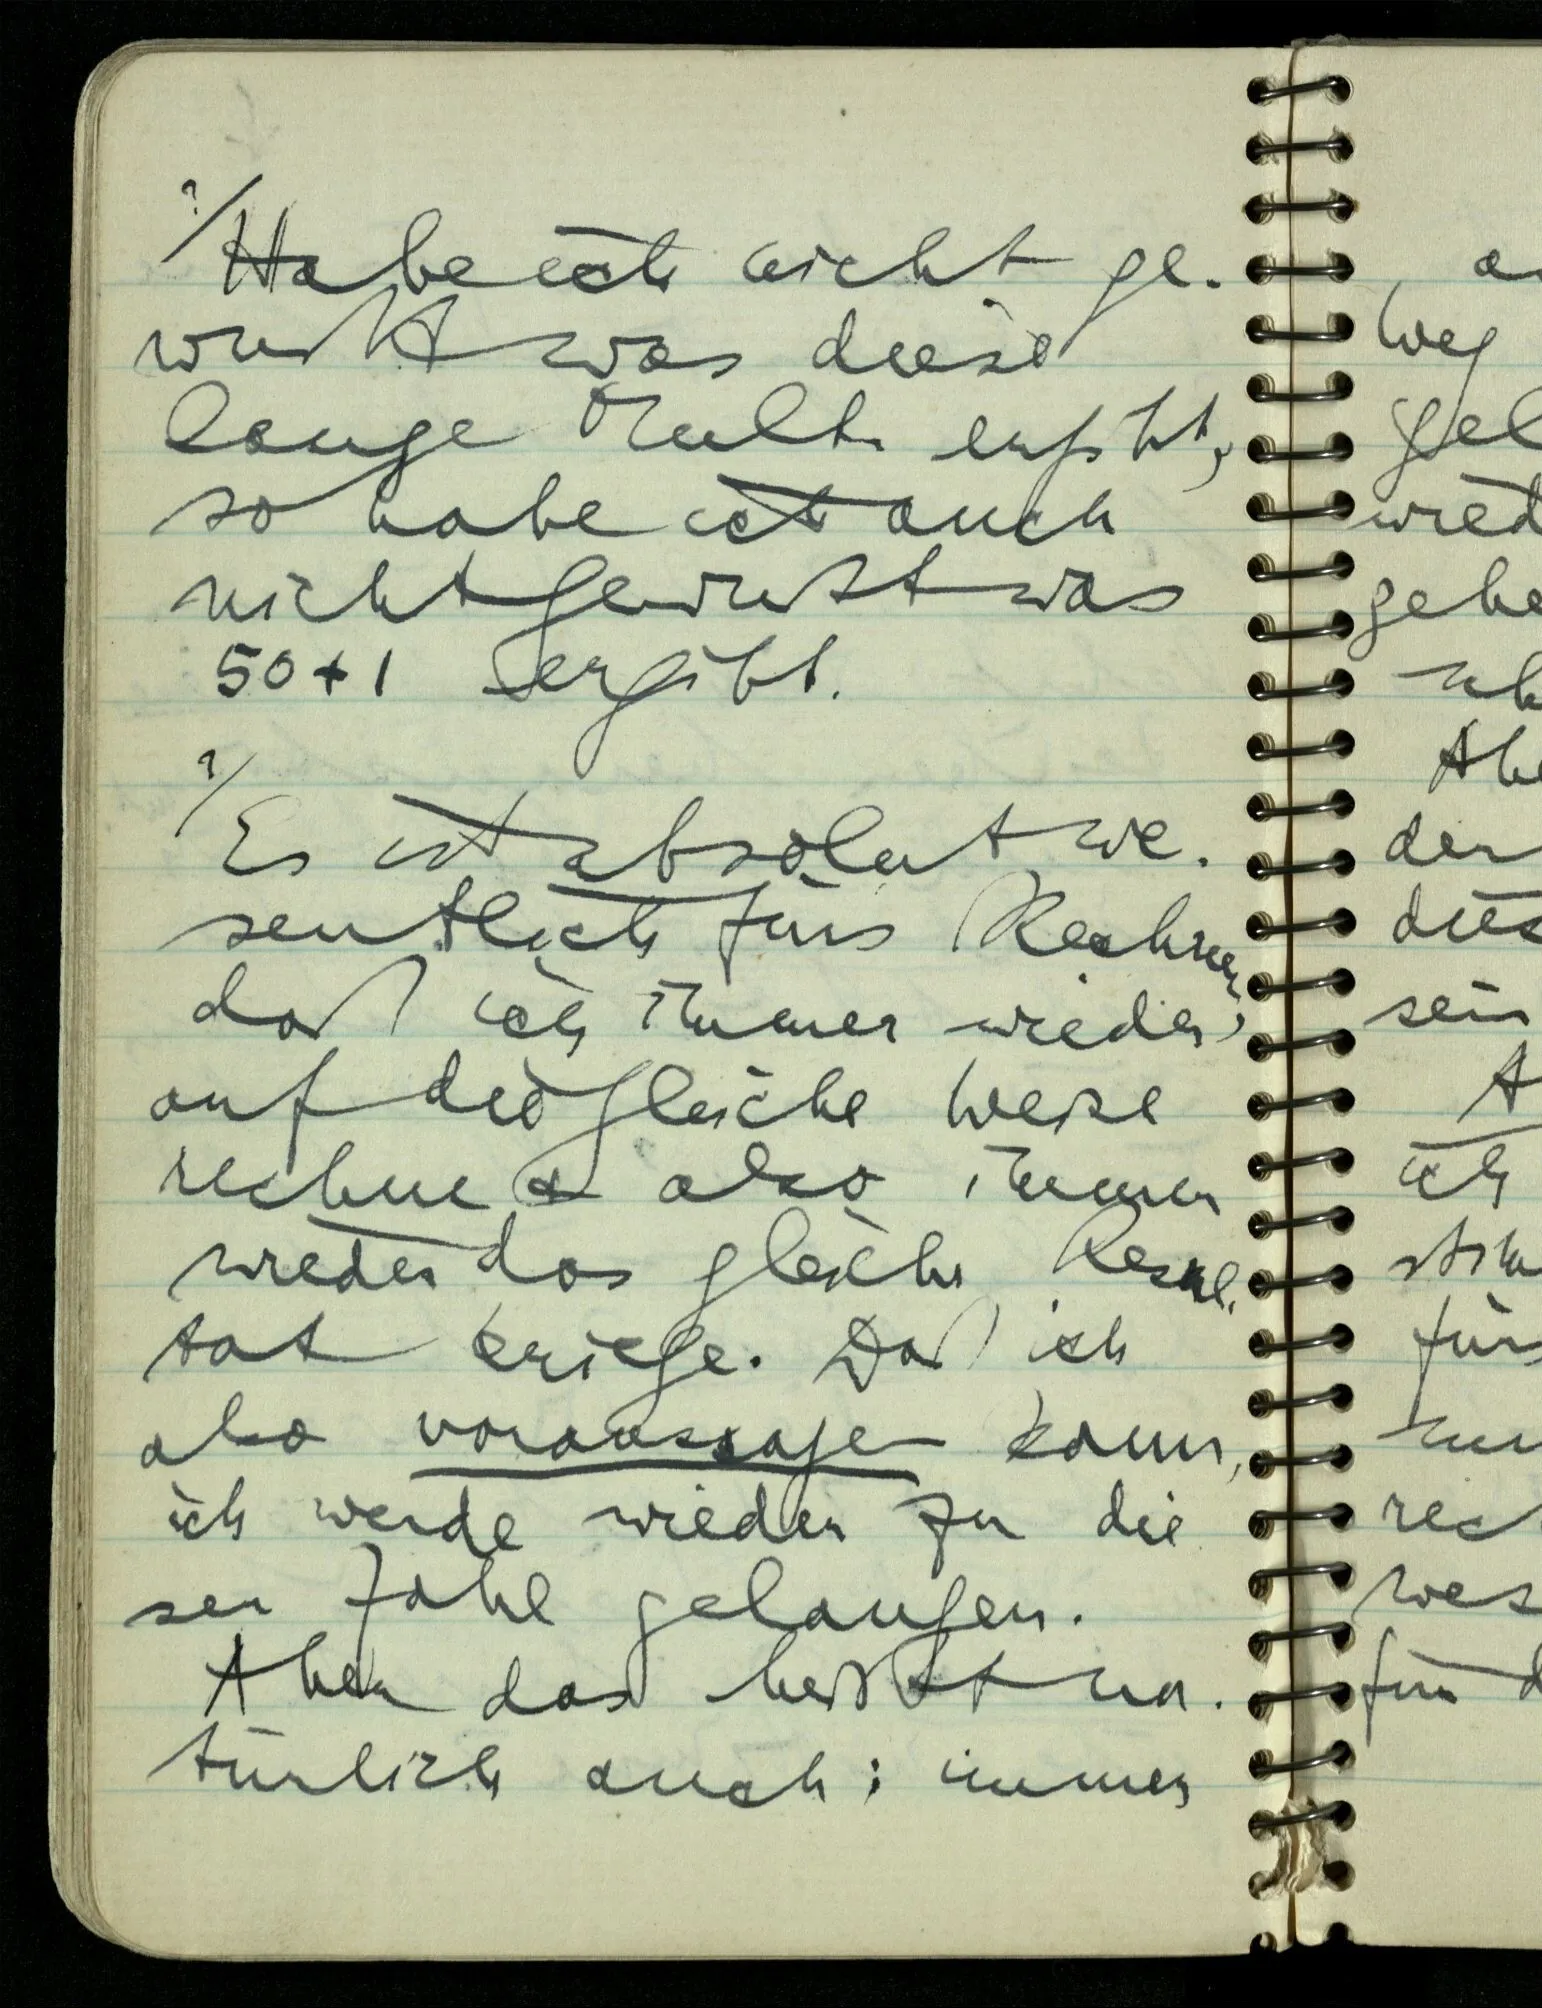 ?/
Habe ich nicht ge-
wußt was diese
lange Mult. ergibt,
so habe ich auch
nicht gewußt was
50+1 ergibt.
?/
Es ist absolut we-
sentlich fürs Rechnen,
daß ich immer wieder,
auf die gleiche Weise
rechne & also immer
wieder das gleiche Resul-
tat kriege. Daß ich
also voraussagen kann,
ich werde wieder zu die
ser Zahl gelangen.
Aber das heißt na-
türlich auch: immer
weg
wied
gehe
der
dies
sein
A
ich
fürs
rec
wes
für d